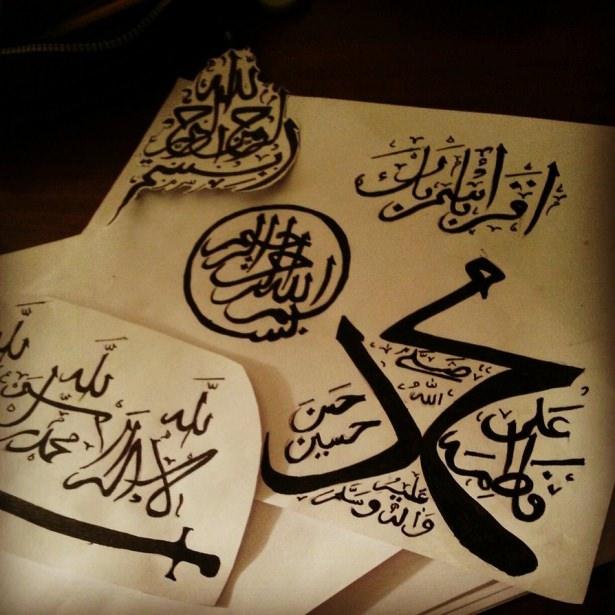 بسم الله الرحمن الرحيم
اقرأ باسم ربك
بسم الله الرحمن الرحيم
محمد
صلى
الله
عليه
وآله وسلم
علي
فاطمة
حسن
حسين
لا إله
الله
محمد